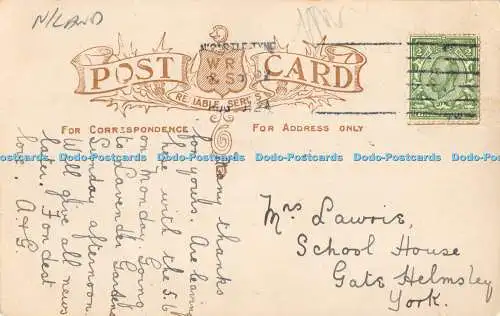 N/LAND
N'CASTLE-TYNE
POST CARD
W R
& S
RELIABLE SERIES
FOR CORRESPONDENCE
FOR ADDRESS ONLY
Dodo-Postcards Dodo-Postcards Dodo-Postcards Dodo-Postcards Dodo-Postcards Dodo-Postcards
Many thanks
for yours. Are leaving
here with the 5.16
on Monday. Going
to Lavender Gardens
Sunday afternoon.
Will give all news
later. Fondest
love. A & G.
Mrs Lawris,
School House
Gate Helmsley
York.